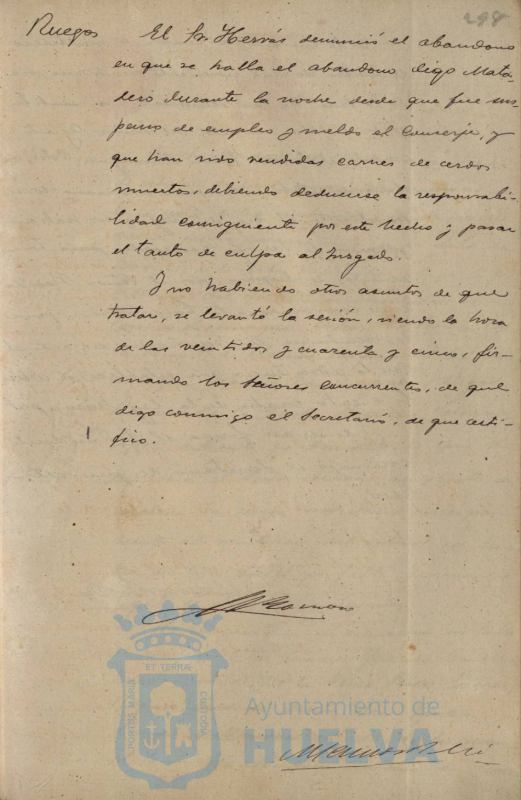 298
Ruegos El Sr. Hervás denunció el abandono
en que se halla el abandono digo Mata-
dero durante la noche desde que fue sus-
penso de empleo y sueldo el Conserje, y
que han sido vendidas carnes de cerdos
muertos, debiendo deducirse la responsabi-
lidad consiguiente por este hecho y pasar
el tanto de culpa al Juzgado.
Y no habiendo otros asuntos de que
tratar, se levantó la sesión, siendo la hora
de las veintidos y cuarenta y cinco, fir-
mando los Señores concurrentes, de que
digo conmigo el Secretario, de que certi-
fico.
PORTUS MARIS
ET TERRÆ
CUSTODIA
Ayuntamiento de
HUELVA